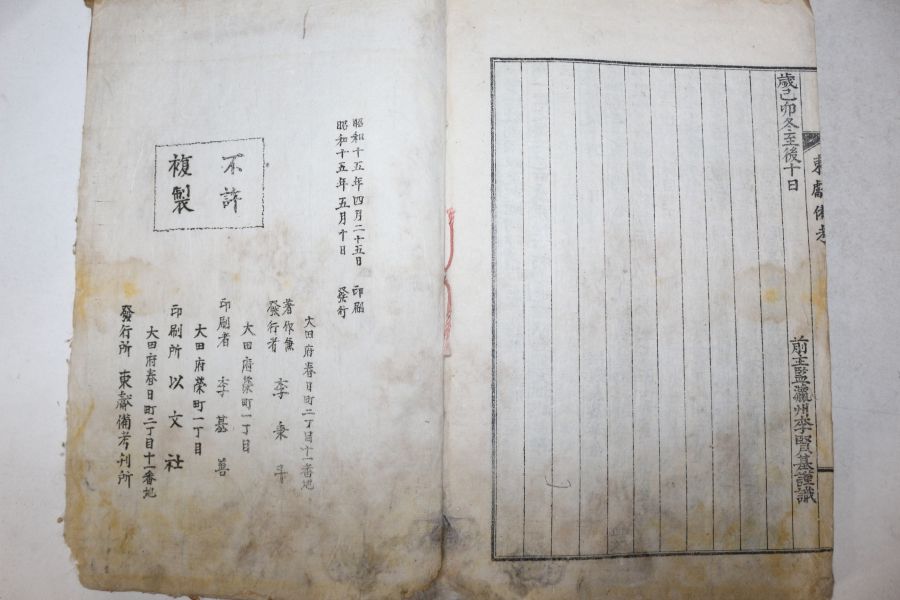 歲己卯冬至後十日
前主監瀛州李賢基謹識
東獻備考
昭和十五年四月二十五日 印刷
昭和十五年五月十日 發行
不許
複製
大田府春日町二丁目十一番地
著作兼
發行者 李秉
大田府榮町一丁目
印刷者 李基善
大田府榮町一丁目
印刷所 以文社
大田府春日町二丁目十一番地
發行所 東獻備考刊所